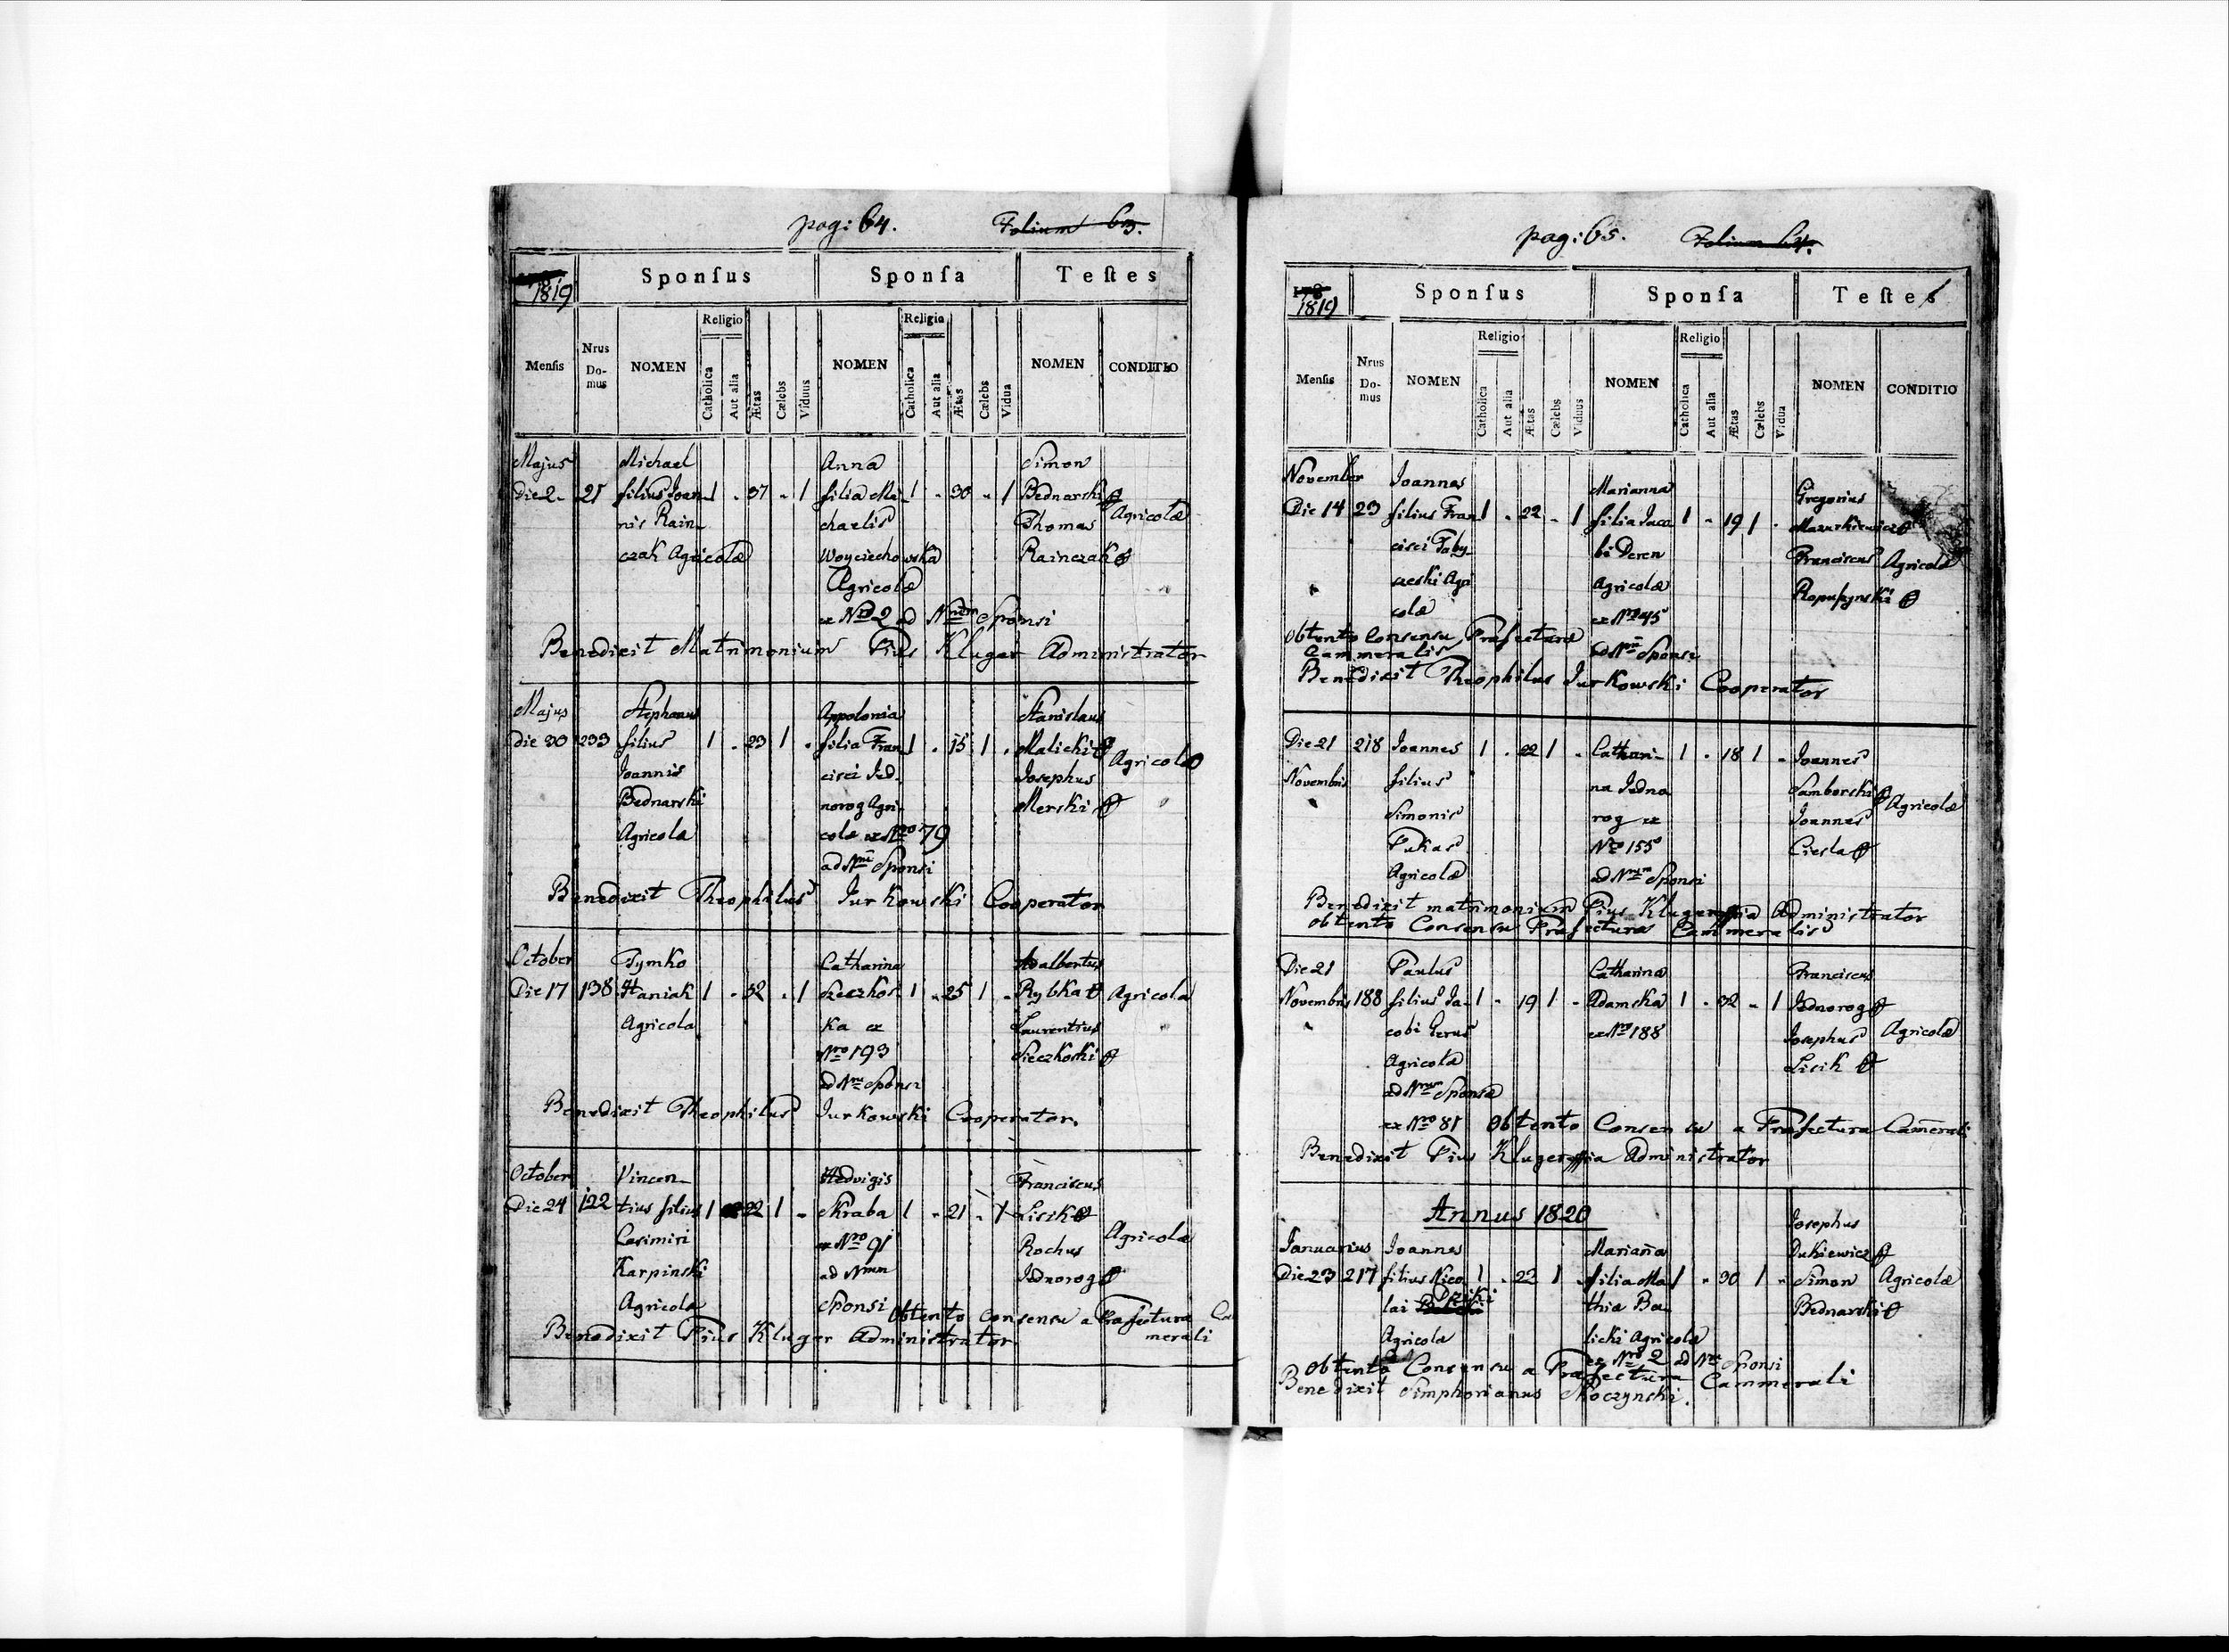 pag: 64. Folium 63.
1819 Sponſus Sponſa Teſtes
Religio Religio
Menſis Nrus Do-mus NOMEN Catholica Aut alia Ætas Cælebs Viduus NOMEN Catholica Aut alia Ætas Cælebs Vidua NOMEN CONDITIO
Majus Michael Anna Simon
Die 2 21 filius Joan 1 - 37 - 1 filia Mi 1 - 30 - 1 Bednarski
nis Rain chaelis Thomas Agricolæ
czak Agricolæ Woyciechowska Rainczak
Agricolæ
ex Nro 2 ad Nrum Sponsi
Benedixit Matrimonium Pius Kluger Administrator
Majus Stephanus Appolonia Stanislaus
Die 30 233 filius 1 - 23 1 - filia Fran 1 - 15 1 - Malicki
Joannis cisci Jed Josephus Agricolæ
Bednarski norog Agri- Merski
Agricola colæ ex Nro 79
ad Nrum Sponsi
Benedixit Theophilus Jurkowski Cooperator
October Tymko Catharina Adalbertus
Die 17 138 Haniak 1 - 32 - 1 1 - 25 1 - Rybka Agricola
Agricola ka ex Laurentius
Nro 193 Sieczkoski
ad Nrum Sponsi
Benedixit Theophilus Jurkowski Cooperator.
October Vincen- Hedvigis Franciscus
Die 24 122 tius filius 1 22 1 - Skraba 1 - 21 - 1 Lisik
Casimiri ex Nro 91 Rochus Agricolæ
Karpinski ad Nrum Jednorog
Agricola Sponsi Obtento Consensu a Præfectura Ca
Benedixit Pius Kluger Administrator merali
pag: 65. Folium 64.
1819 Sponſus Sponſa Teſtes
Religio Religio
Menſis Nrus Do-mus NOMEN Catholica Aut alia Ætas Cælebs Viduus NOMEN Catholica Aut alia Ætas Cælebs Vidua NOMEN CONDITIO
November Joannes Marianna Gregorius
Die 14 23 filius Fran 1 - 22 - 1 filia Jaco 1 - 19 1 - Mazurkiewicz
cisci Taby bi Deren Franciscus Agricolæ
Agri Agricolæ
colæ ex Nro 45
Obtento Consensu Præfecturæ ad Nrum Sponsi
Cammeralis
Benedixit Theophilus Jurkowski Cooperator
Die 21 218 Joannes 1 - 22 1 - Cathari- 1 - 18 1 - Joannes
Novembris filius na Jedno Samborski Agricolæ
Simonis rog ex Joannes
Pukas Nro 155 Ciesla
Agricolæ ad Nrum Sponsi
Benedixit matrimonium Pius Kluger Administrator
obtento Consensu Præfecturæ Cammeralis
Die 21 Paulus Catharina Franciscus
Novembris 188 filius Ja- 1 - 19 1 - Adamska 1 - 32 - 1 Jednorog
cobi Gerus ex Nro 188 Josephus Agricolæ
Agricola Lisik
ad Nrum Sponsæ
ex Nro 81 Obtento Consensu a Præfectura Camerali
Benedixit Pius Kluger Administrator
Annus 1820 Josephus
Januarius Joannes Mariana Dukiewicz
Die 23 217 filius Nico 1 - 23 1 - filia Ma 1 - 30 1 - Simon Agricolæ
lai thia Ba Bednarski
Agricola licki Agricolæ
ex Nro 2 ad Nrum Sponsi
Obtento Consensu a Præfectura Cammerali
Benedixit Simphorianus Skoczynski.